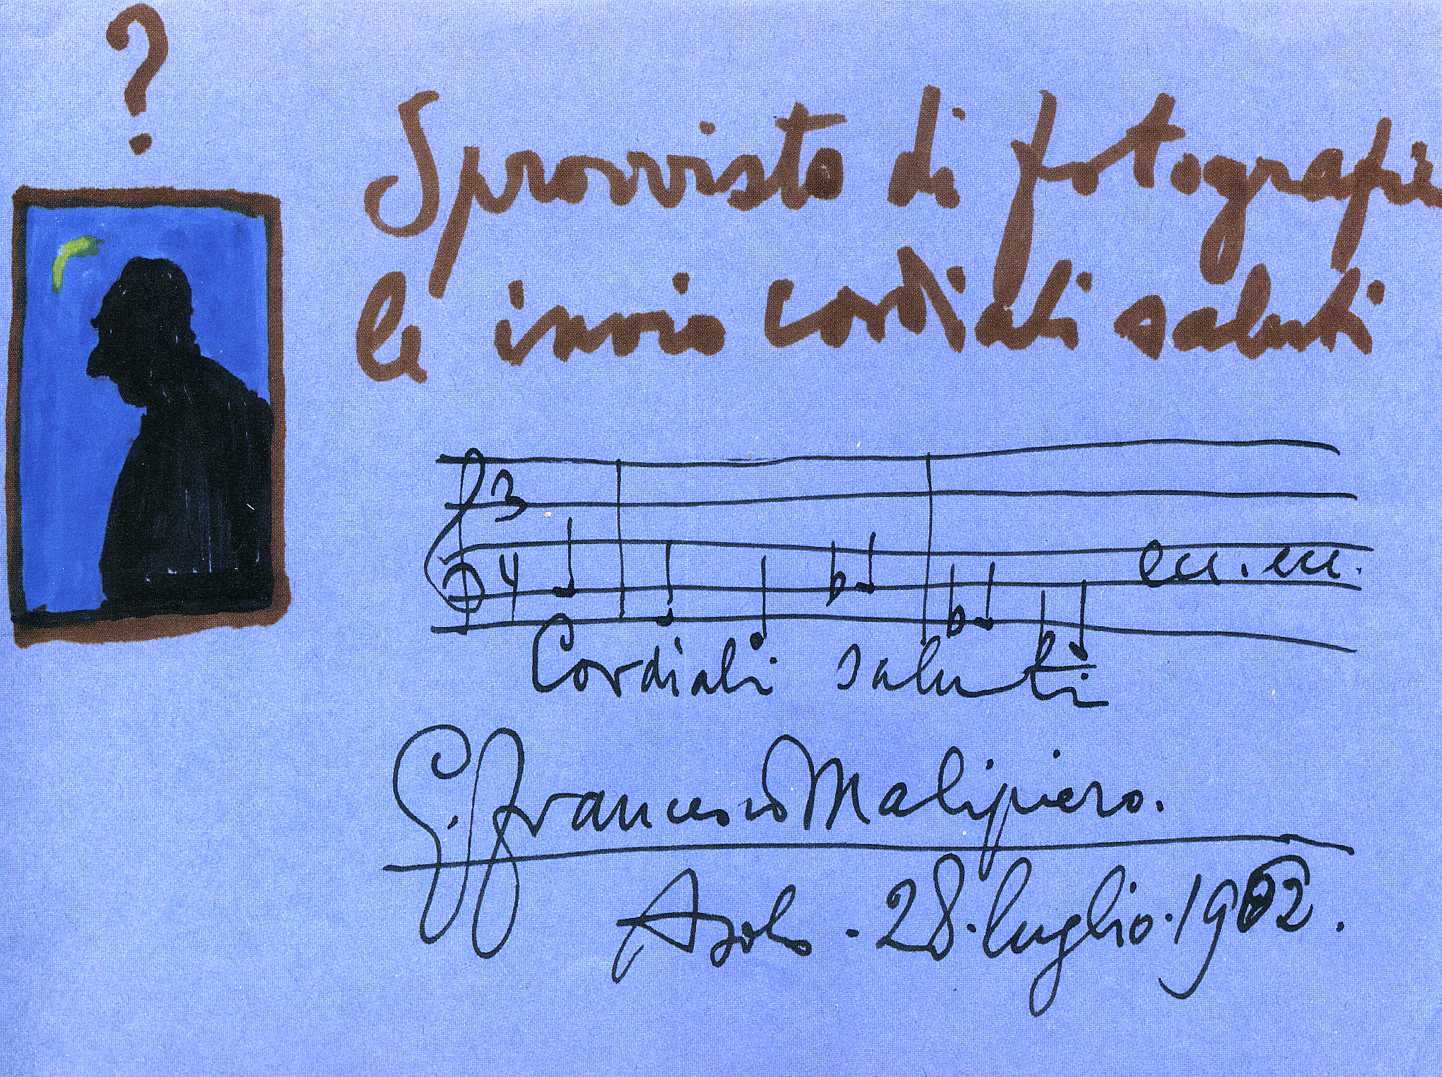 ?
Sprovvisto di fotografie
le invio cordiali saluti
3
4
ecc. ecc.
Cordiali saluti
G. Francesco Malipiero.
Asolo - 28. luglio. 1962.